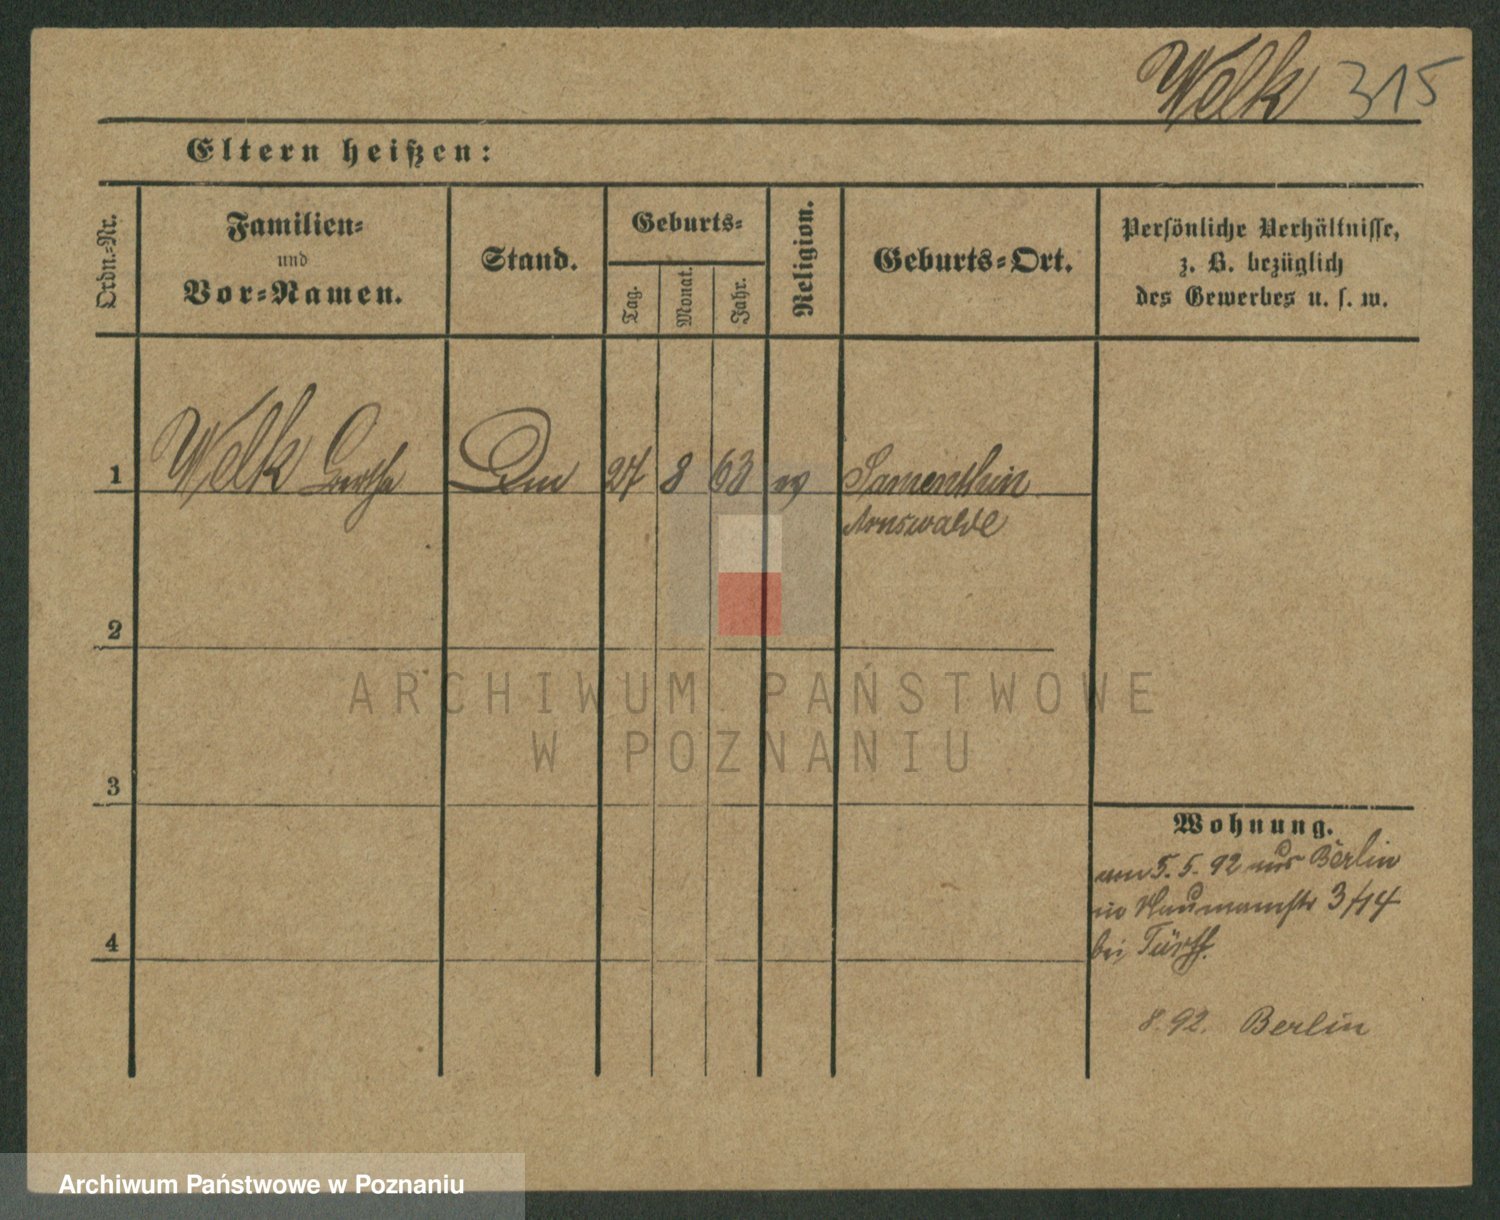 Welk 315
Eltern heißen:
Ordn.-Nr.
Familien-
und
Vor-Namen.
Stand.
Geburts-
Tag.
Monat.
Jahr.
Religion.
Geburts-Ort.
Persönliche Verhältnisse,
z. B. bezüglich
des Gewerbes u. s. w.
1 Welk 27 8 63
Arnswalde
2
ARCHIWUM PAŃSTWOWE
W POZNANIU
3
Wohnung.
am 5.5.92 aus Berlin
in Naumannstr 3/14
4
bei
8.92. Berlin
Archiwum Państwowe w Poznaniu